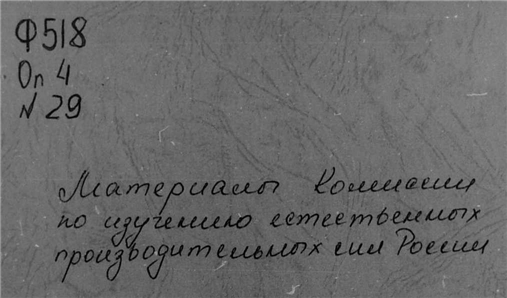 Ф518
Оп 4
N 29
Материалы Комиссии
по изучению естественных
производительных сил России